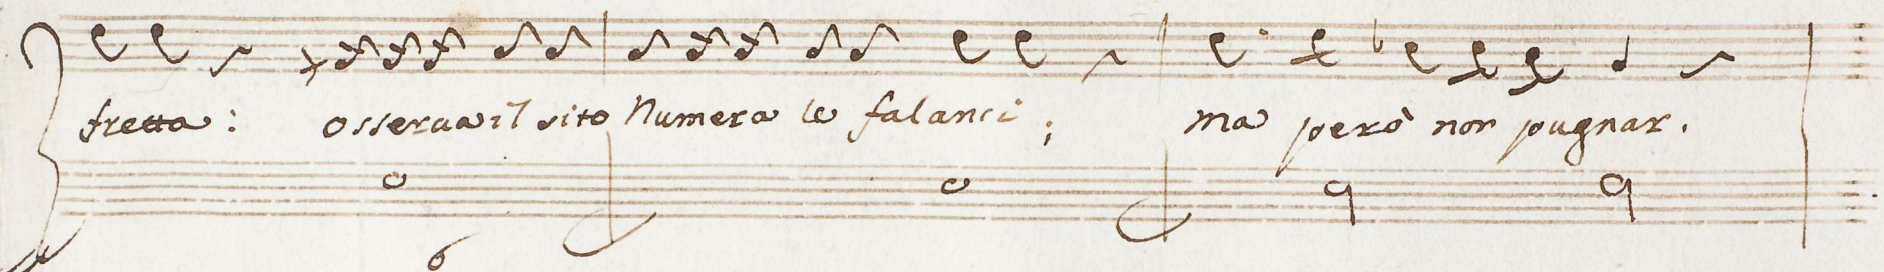 fretta: osserua il sito Numera le falanci; ma però non pugnar.
6